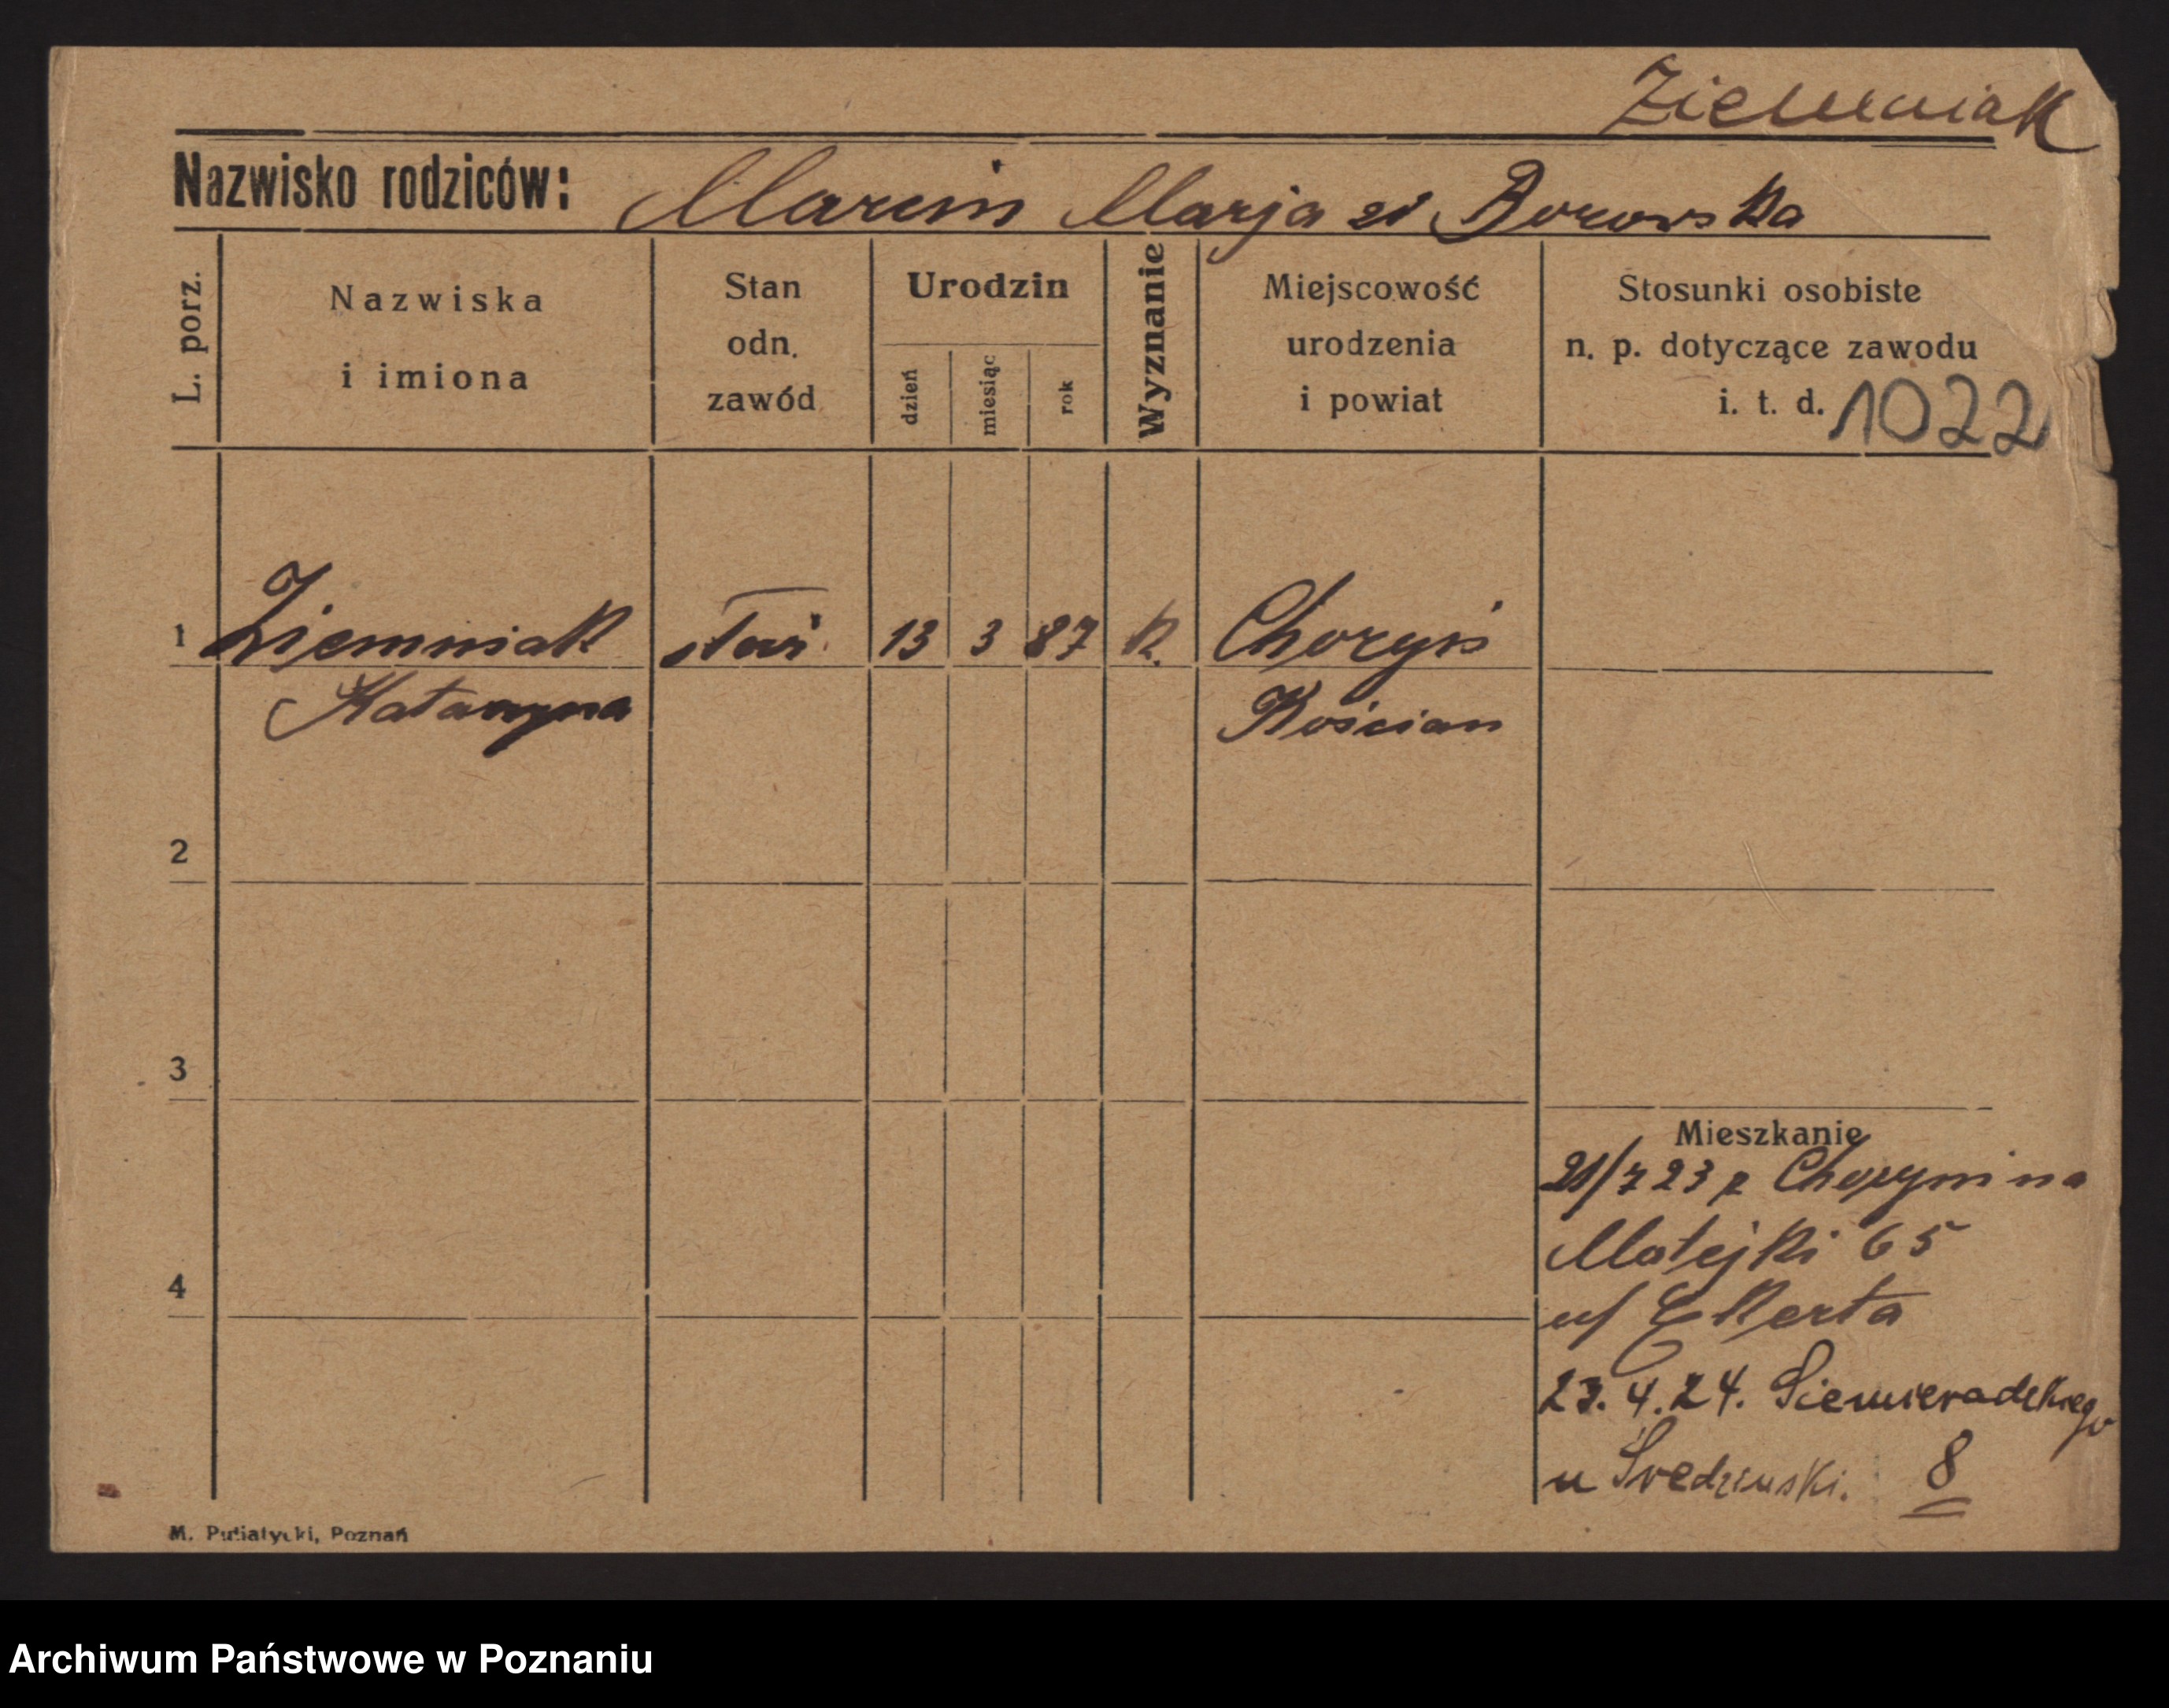 Ziemniak
Nazwisko rodziców: Marcin Marja zd Borowska
L. porz.
Nazwiska
i imiona
Stan
odn.
zawód
Urodzin
dzień
miesiąc
rok
Wyznanie
Miejscowość
urodzenia
i powiat
Stosunki osobiste
n. p. dotyczące zawodu
i. t. d. 1022
1 Ziemniak 13 3 87 k. Choryń
Katarzyna Kościan
2
3
4
Mieszkanie
21/7 23 z Choryni na
Matejki 65
u/ Ekkerta
23.4.24. Siemieradzkiego
u Średziński. 8
M. Putiatycki, Poznań
Archiwum Państwowe w Poznaniu